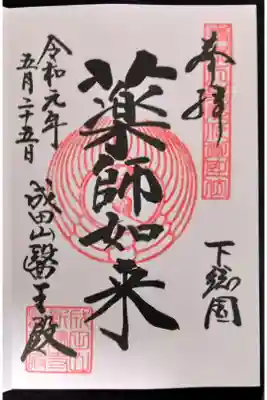 奉拝
下総国
薬師如来
成田山醫王殿
令和元年
五月二十五日